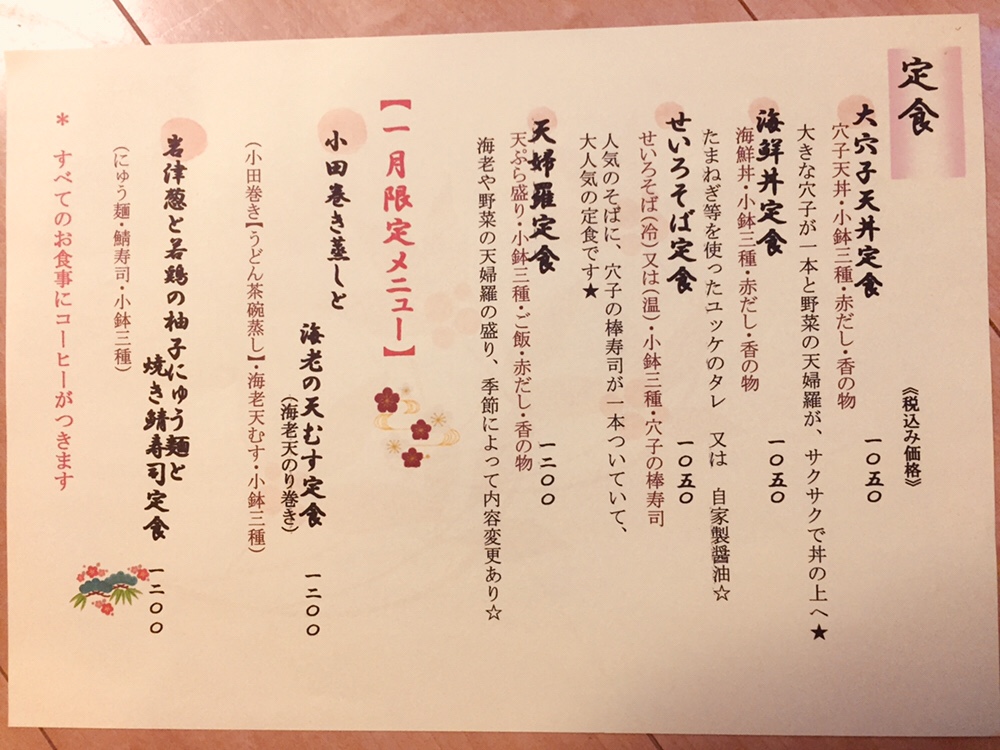 定食
《税込み価格》
大穴子天丼定食 一〇五〇
穴子天丼・小鉢三種・赤だし・香の物
大きな穴子が一本と野菜の天婦羅が、サクサクで丼の上へ★
海鮮丼定食 一〇五〇
海鮮丼・小鉢三種・赤だし・香の物
たまねぎ等を使ったユッケのタレ 又は 自家製醤油☆
せいろそば定食 一〇五〇
せいろそば(冷)又は(温)・小鉢三種・穴子の棒寿司
人気のそばに、穴子の棒寿司が一本ついていて、
大人気の定食です★
天婦羅定食 一二〇〇
天ぷら盛り・小鉢三種・ご飯・赤だし・香の物
海老や野菜の天婦羅の盛り、季節によって内容変更あり☆
【一月限定メニュー】
小田巻き蒸しと
海老の天むす定食 一二〇〇
(海老天のり巻き)
(小田巻き【うどん茶碗蒸し】・海老天むす・小鉢三種)
岩津葱と若鶏の柚子にゅう麺と
焼き鯖寿司定食 一二〇〇
(にゅう麺・鯖寿司・小鉢三種)
* すべてのお食事にコーヒーがつきます